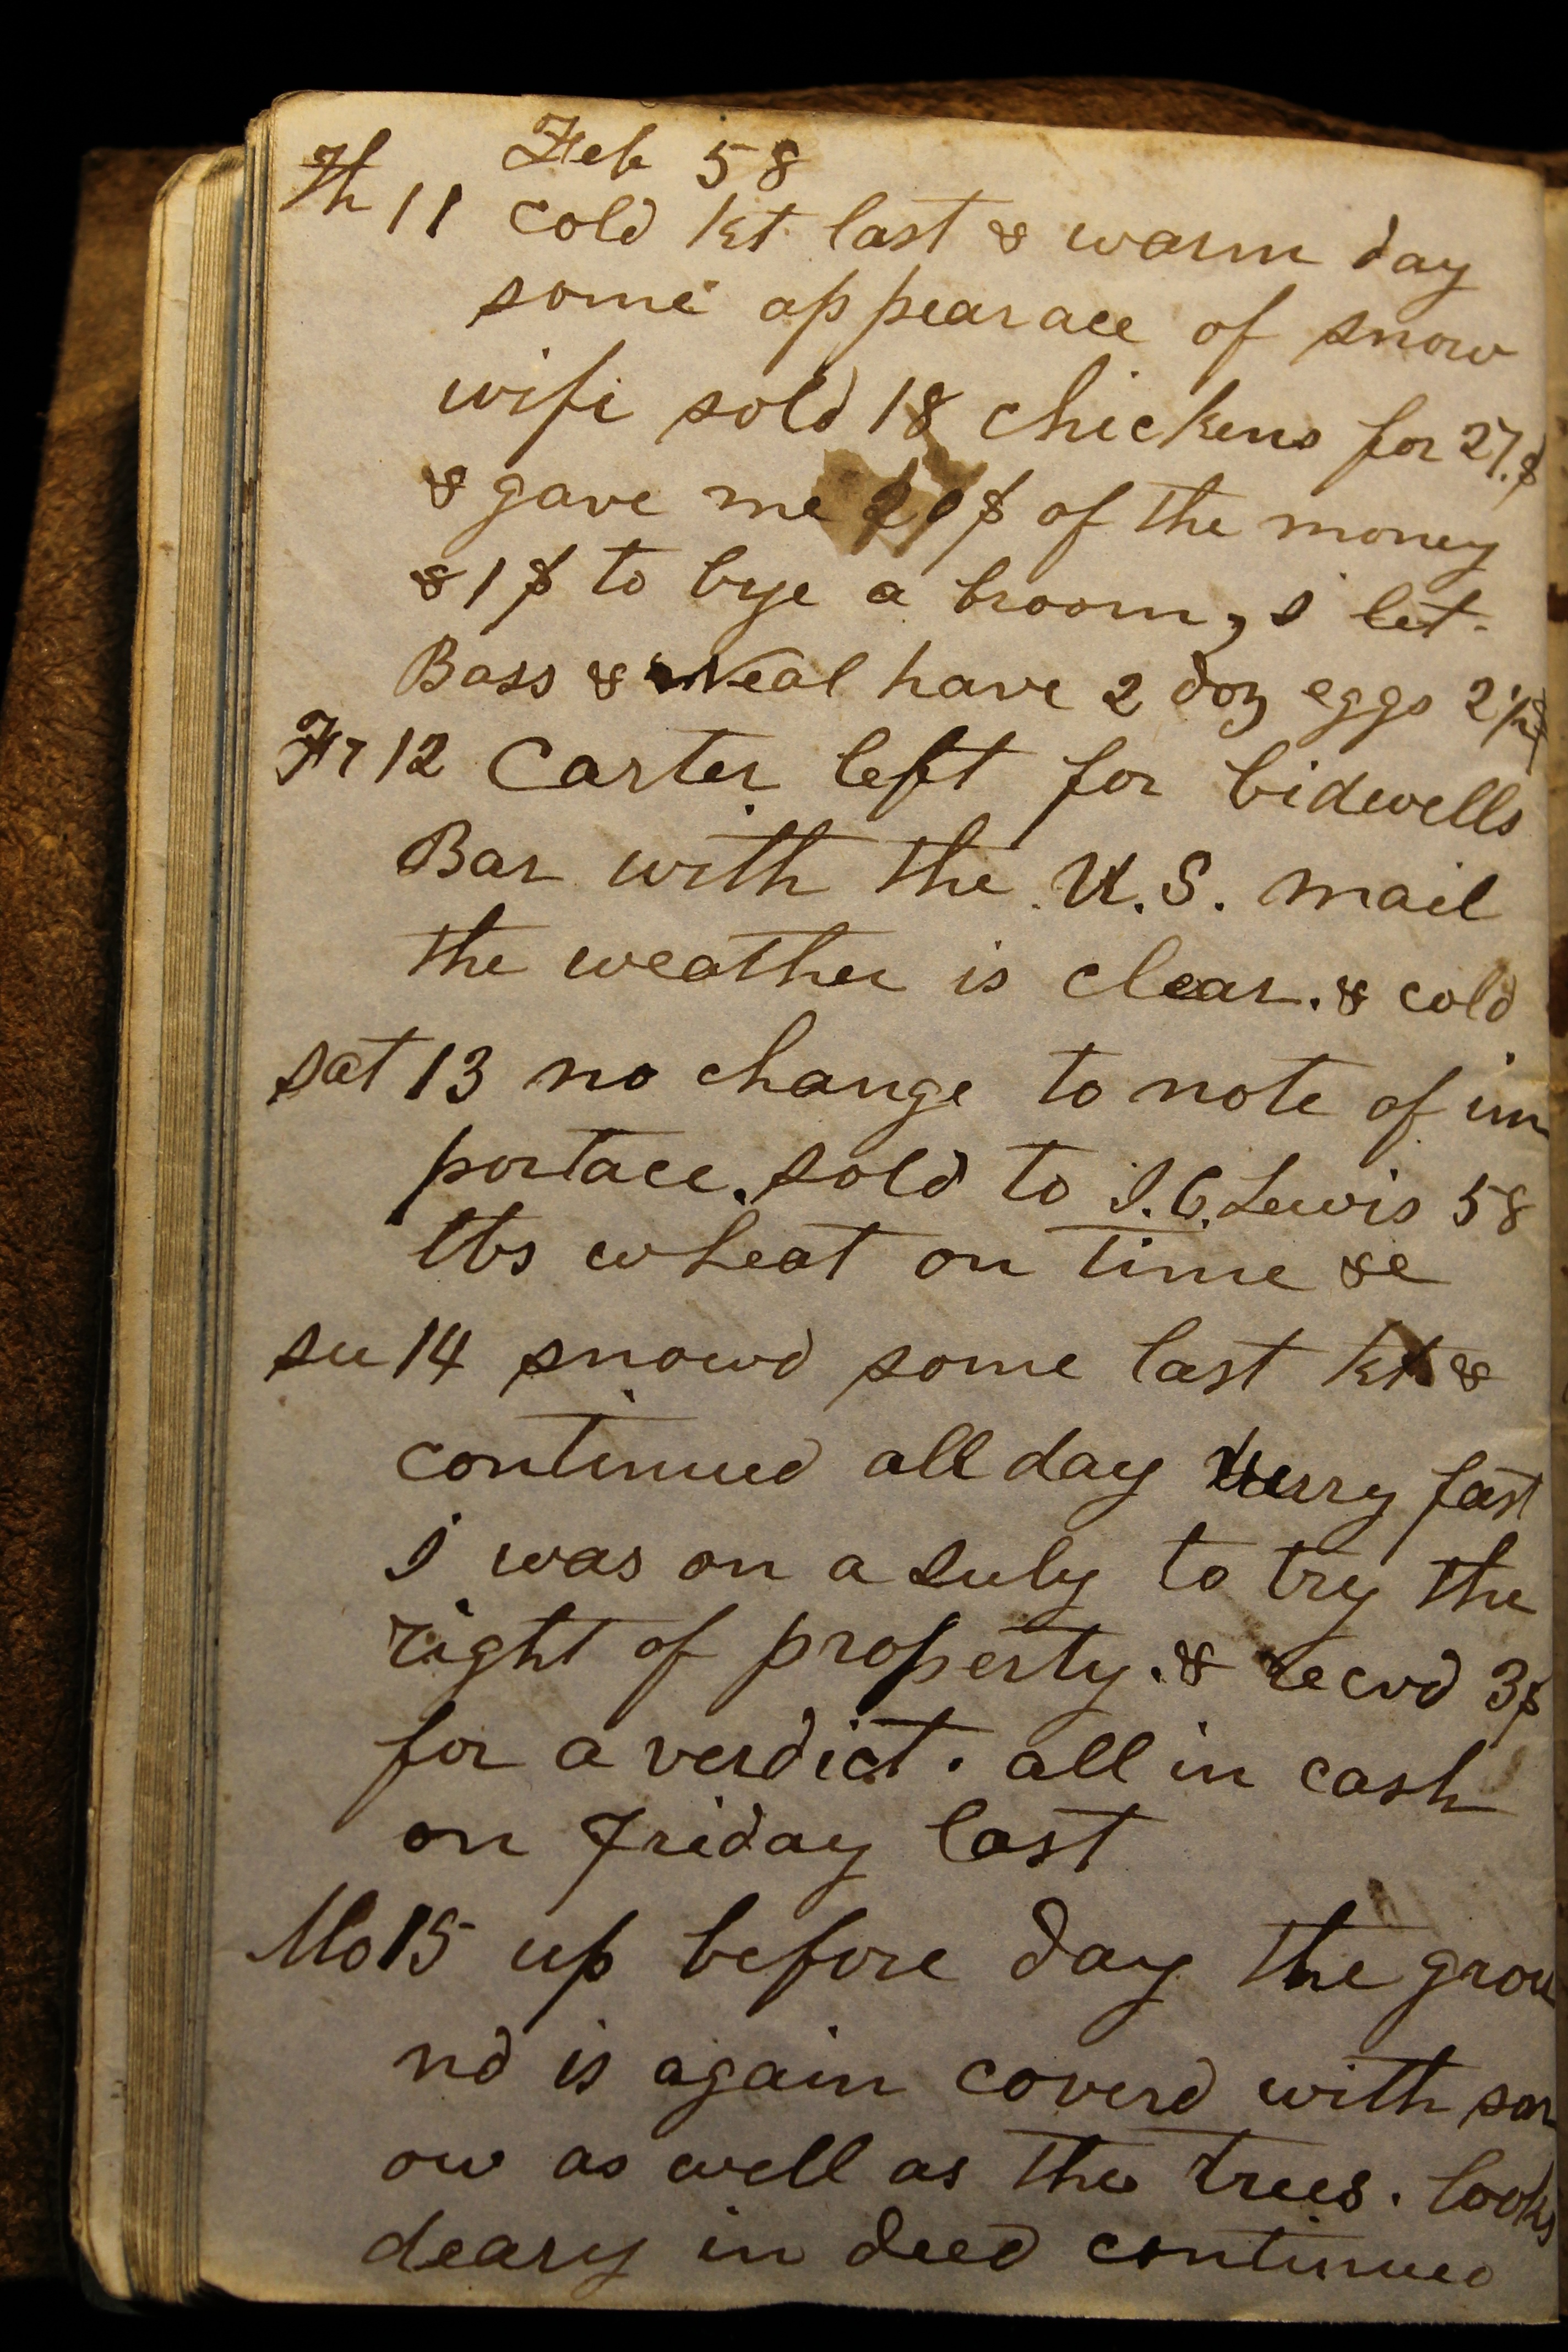 Feb 58
Th 11 cold kt last & warm day
some appearace of snow
wife sold 18 chickens for 27.$
& gave me 20$ of the money
& 1$ to bye a broom, I let
Bass & Neal have 2 doz eggs 2½$
Fr 12 Carter left for bidwells
Bar with the U.S. mail
the weather is clear. & cold
sat 13 no change to note of im
portace. sold to I.C. Lewis 58
lbs wheat on time &c
su 14 snowd some last kt &
continued all day verry fast
I was on a July to try the
right of property. & recvd 3$
for a verdict. all in cash
on Friday last
Mo 15 up before day the grou
nd is again coverd with sn
ow as well as the trees. looks
deary in deed continued